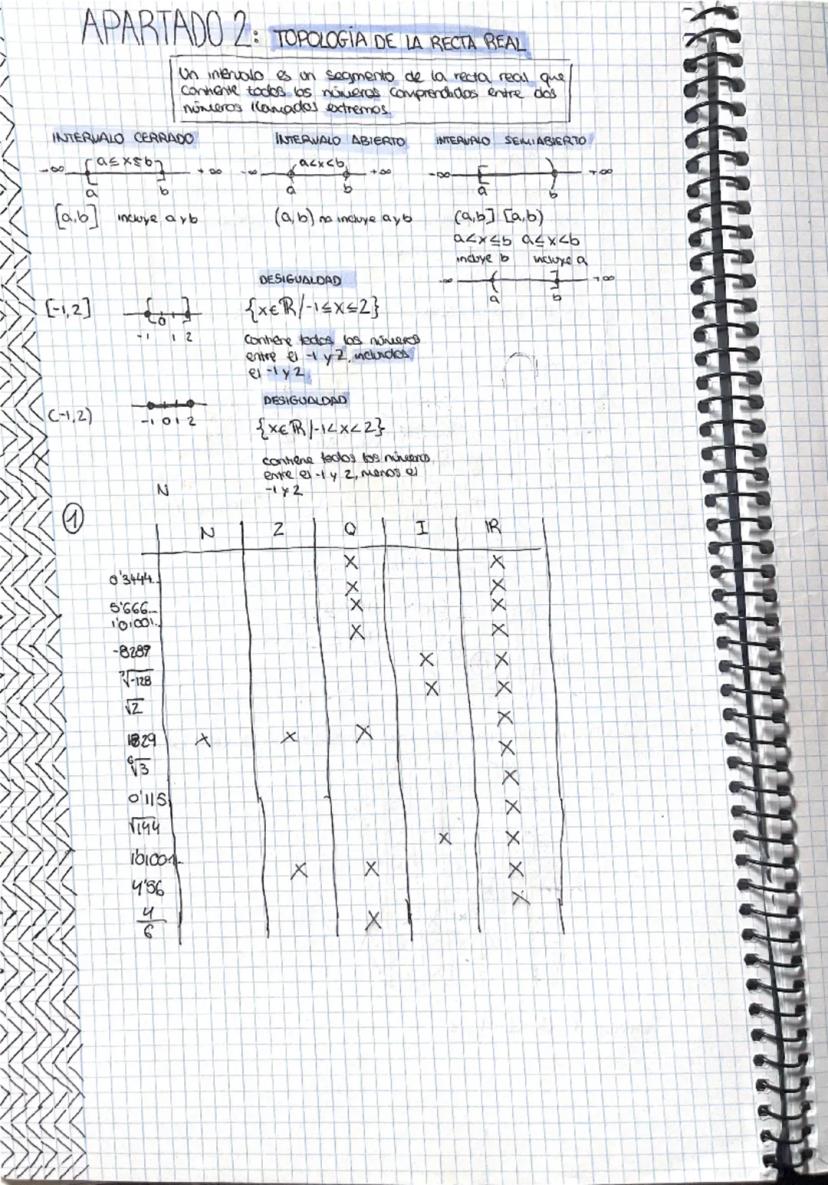 APARTADO 2: TOPOLOGÍA DE LA RECTA REAL
Un intervalo es un segmento de la recta real que
contiene todos los números comprendidos entre dos
números llamados extremos.
INTERVALO CERRADO
-∞ [ a≤x≤b ] +∞
a b
[a,b] incluye a y b
INTERVALO ABIERTO
-∞ a<x<b +∞
a b
(a,b) no incluye a y b
INTERVALO SEMIABIERTO
-∞ [ ) +∞
a b
(a,b] [a,b)
a<x≤b a≤x<b
incluye b incluye a
-∞ ( ] +∞
a b
[-1,2]
-1 0 1 2
DESIGUALDAD
{x∈ℝ/-1≤x≤2}
contiene todos los números
entre el -1 y 2, incluidos
el -1 y 2.
(-1,2)
-1 0 1 2
DESIGUALDAD
{x∈ℝ/-1<x<2}
contiene todos los números
entre el -1 y 2, menos el
-1 y 2
N
1
N Z Q I ℝ
X X
0'3444... X X
5'666... X X
1'01001... X X
-8289 X X
⁷√-128 X X
√2 X
1829 X X X X
⁶√3 X
0'115 X
√144 X X
1'01001... X X X
4'56 X
4/6 X